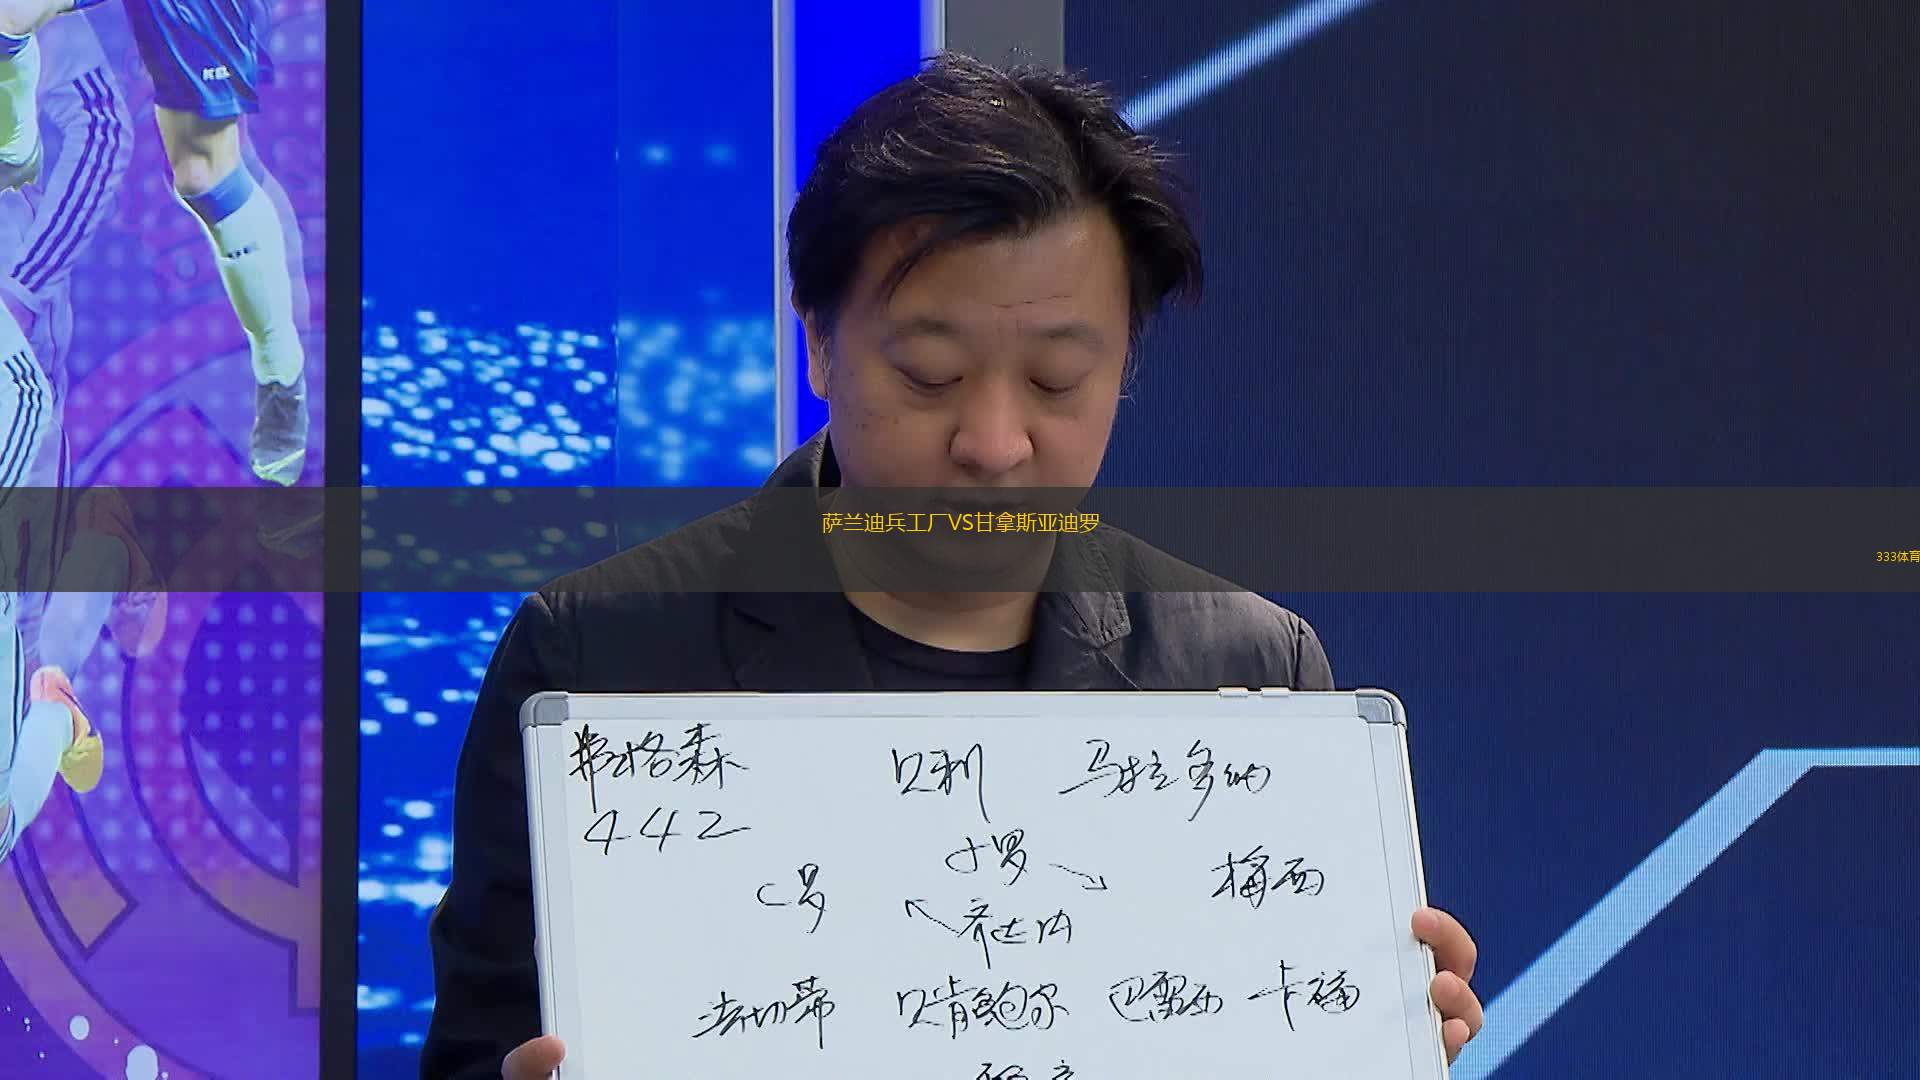 萨兰迪兵工厂VS甘拿斯亚迪罗
333体育
弗格森 贝利 马拉多纳
442
小罗
C罗 梅西
齐达内
法切蒂 贝肯鲍尔 巴雷西 卡福